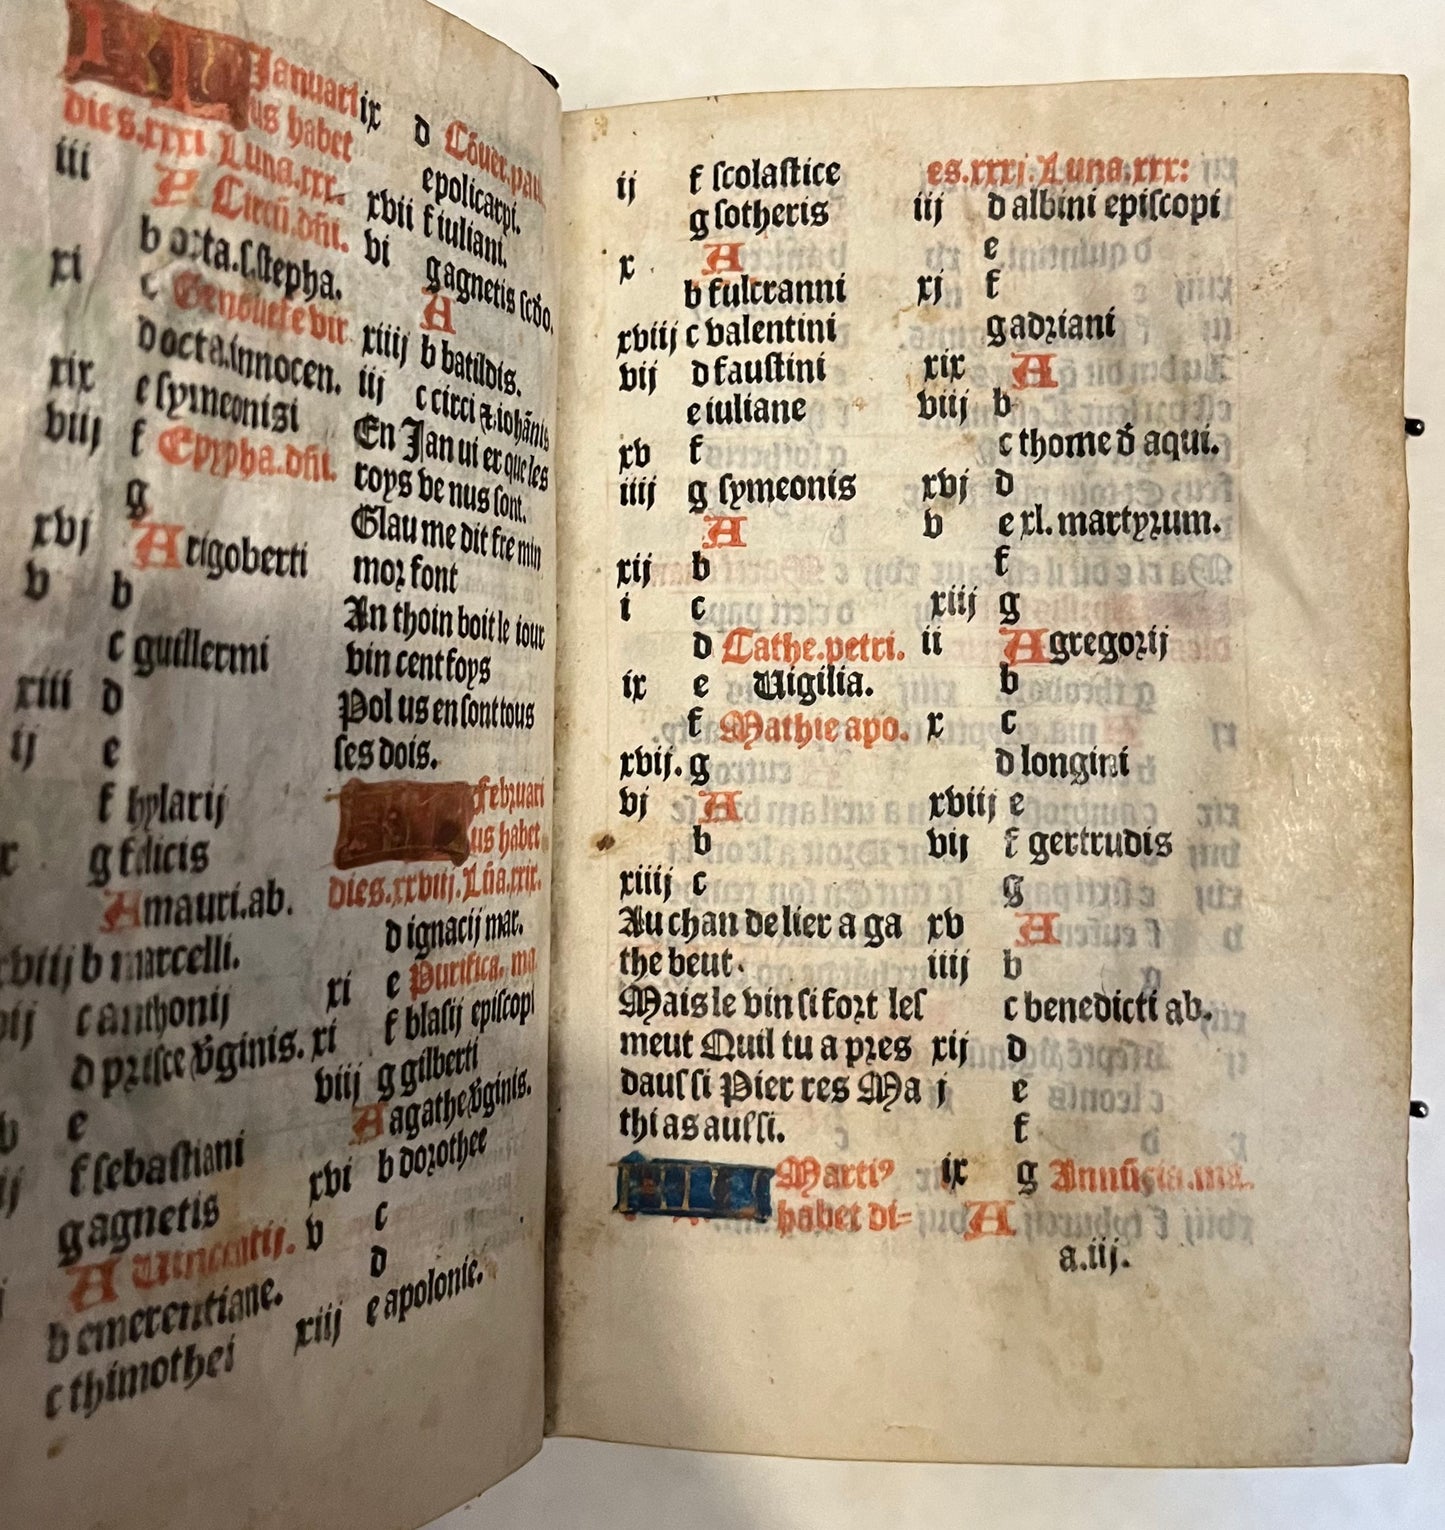 Januari
us habet
dies.xxxi Luna.xxx.
iii
Circũ.dñi.
b octa.s.stepha.
xi c Genouefe vir
d octa.innocen.
xix e symeonisi
viij f Epypha.dñi.
g
xvj A rigoberti
v b
c guillermi
xiii d
ij e
f hylarij
x g felicis
A mauri.ab.
xviij b marcelli.
vij c anthonij
d prisce v̄ginis.
e
f sebastiani
g agnetis
A Uincentij.
b emerentiane.
c thimothei
ix d Cõuer.pau
e policarpi.
xvii f iuliani.
vi g agnetis scďo.
A
xiiij b batildis.
iij c circi ⁊.iohãnis
En Jan ui er que les
roys ve nus sont.
Glau me dit fre min
mor font
An thoin boit le iour
vin cent foys
Pol us en sont tous
ses dois.
Februari
us habet
dies.xxviij.Lũa.xxix.
d ignacij mar.
xi e Purifica. ma
xi f blasij episcopi
viij g gilberti
A agathe v̄ginis.
xvi b dorothee
v c
d
xiij e apolonie.
ij f scolastice
g sotheris
x A
b fulcranni
xviij c valentini
vij d faustini
e iuliane
xv f
iiij g symeonis
A
xij b
i c
d Cathe.petri.
ix e Uigilia.
f Mathie apo.
xvij. g
vj A
b
xiiij c
Au chan de lier a ga
the beut.
Mais le vin si fort les
meut Quil tu a pres
daus si Pier res Ma
thi as aussi.
Marti⁹
habet di=
es.xxxj.Luna.xxx:
iij d albini episcopi
e
xj f
g adriani
xix A
viij b
c thome đ aqui.
xvj d
v e xl. martyrum.
f
xiij g
ii A gregorij
b
x c
d longini
xviij e
vij f gertrudis
g
xv A
iiij b
c benedicti ab.
xij d
j e
f
ix g Annũcia.ma.
A
a.iij.